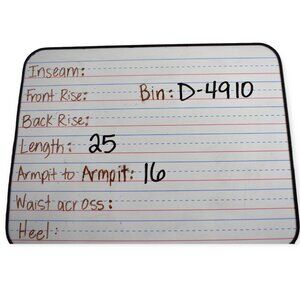 Inseam:
Front Rise: Bin: D-4910
Back Rise:
Length: 25
Armpit to Armpit: 16
Waist across:
Heel: